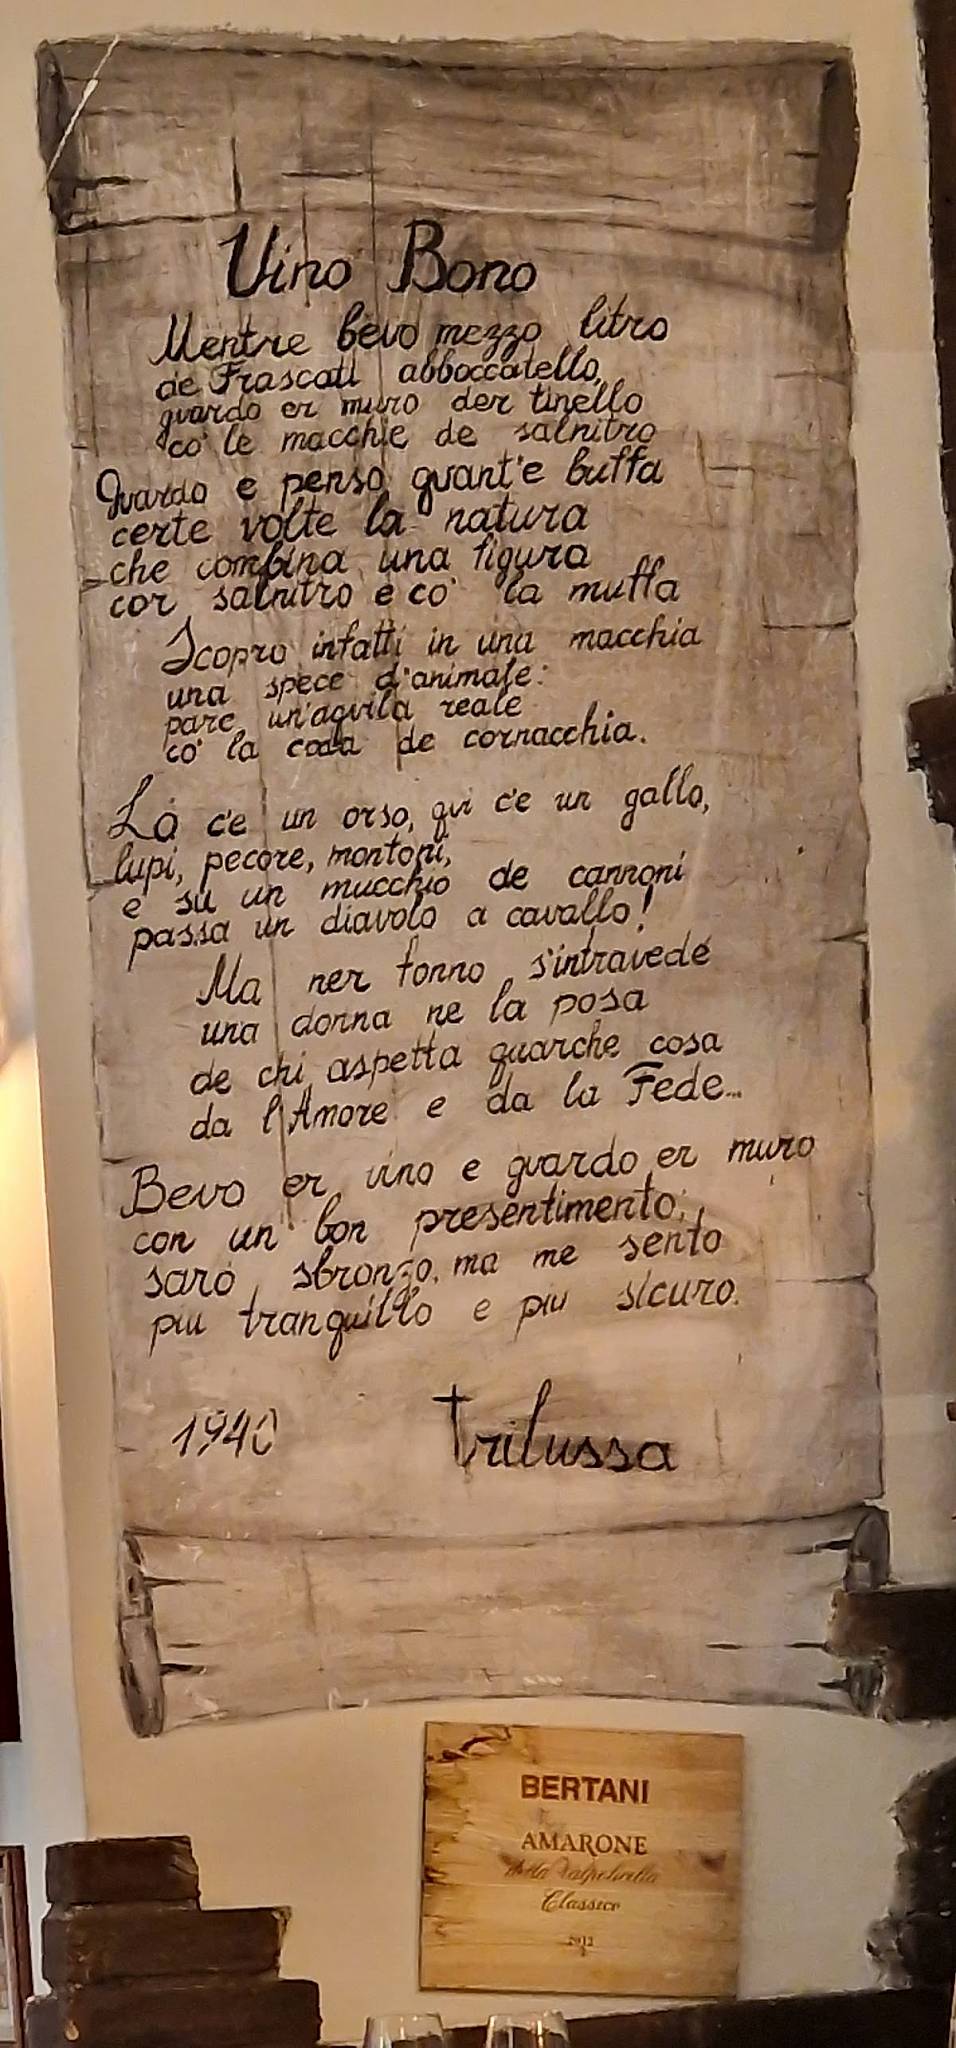 Vino Bono
Mentre bevo mezzo litro
de Frascati abboccatello,
guardo er muro der tinello
co' le macchie de salnitro
Guardo e penso quant'e buffa
certe volte la natura
che combina una figura
cor salnitro e co' la muffa
Scopro infatti in una macchia
una spece d'animale:
pare un'aquila reale
co' la coda de cornacchia.
Là c'e un orso, qui c'e un gallo,
lupi, pecore, montoni,
e su un mucchio de cannoni
passa un diavolo a cavallo!
Ma ner fonno s'intravede
una donna ne la posa
de chi aspetta quarche cosa
da l'Amore e da la Fede...
Bevo er vino e guardo er muro
con un bon presentimento;
sarò sbronzo, ma me sento
piu tranquillo e piu sicuro.
1940 Trilussa
BERTANI
AMARONE
della Valpolicella
Classico
2012